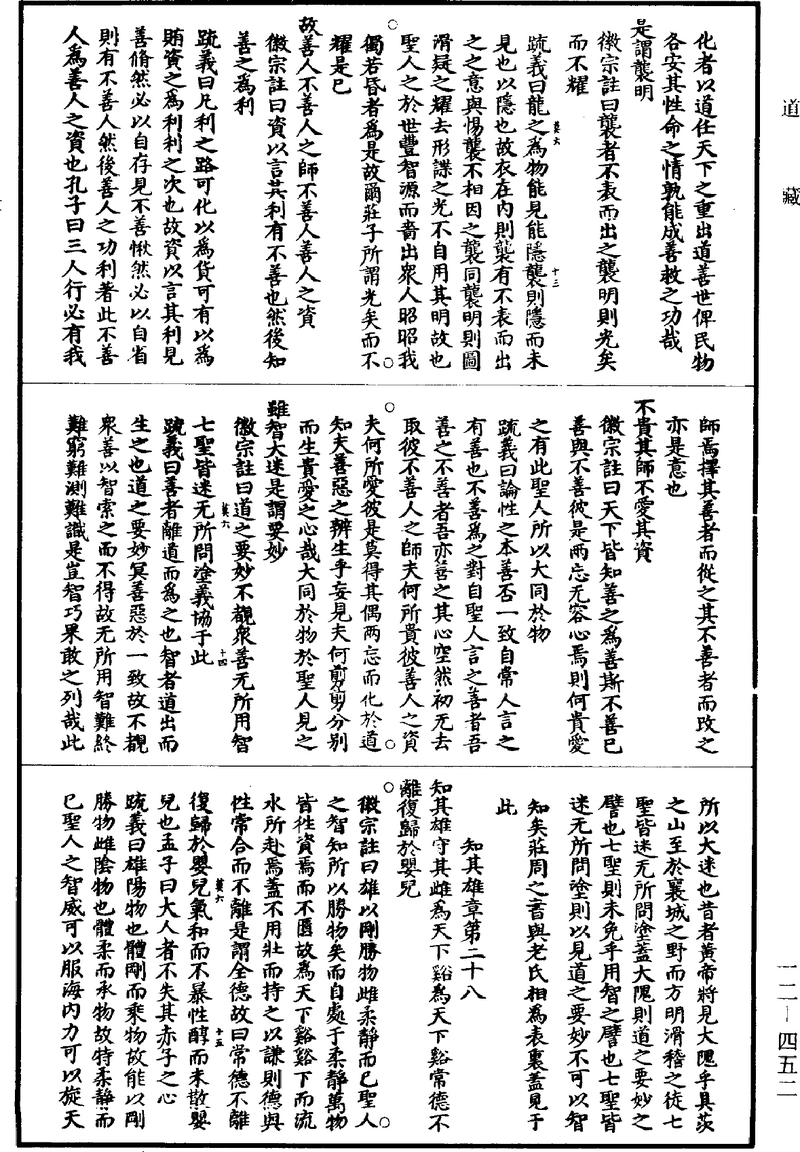 道藏
化者以道任天下之重出道善世俾民物
各安其性命之情孰能成善救之功哉
是謂襲明
徽宗註曰襲者不表而出之襲明則光矣
而不耀
疏義曰龍之為物能見能隱襲則隱而未
見也以隱也故衣在内則襲有不表而出
之之意與惕襲不相因之襲同襲明則圖
滑疑之耀去形諜之光不自用其明故也
聖人之於世豐智源而嗇出衆人昭昭我
獨若昏者為是故爾莊子所謂光矣而不
耀是已
故善人不善人之師不善人善人之資
徽宗註曰資以言其利有不善也然後知
善之為利
疏義曰凡利之路可化以為貨可有以為
賄資之為利利之次也故資以言其利見
善脩然必以自存見不善愀然必以自省
則有不善人然後善人之功利著此不善
人為善人之資也孔子曰三人行必有我
師焉擇其善者而從之其不善者而改之
亦是意也
不貴其師不愛其資
徽宗註曰天下皆知善之為善斯不善已
善與不善彼是兩忘无容心焉則何貴愛
之有此聖人所以大同於物
疏義曰論性之本善否一致自常人言之
有善也不善為之對自聖人言之善者吾
善之不善者吾亦善之其心空然初无去
取彼不善人之師夫何所貴彼善人之資
夫何所愛彼是莫得其偶兩忘而化於道
知夫善惡之辨生乎妄見夫何剪剪分別
而生貴愛之心哉大同於物於聖人見之
雖智大迷是謂要妙
徽宗註曰道之要妙不覩衆善无所用智
七聖皆迷无所問塗義協于此
疏義曰善者離道而為之也智者道出而
生之也道之要妙冥善惡於一致故不覩
衆善以智索之而不得故无所用智難終
難窮難測難識是豈智巧果敢之列哉此
所以大迷也昔者黃帝將見大隗乎具茨
之山至於襄城之野而方明滑稽之徒七
聖皆迷无所問塗蓋大隗則道之要妙之
譬也七聖則未免乎用智之譬也七聖皆
迷无所問塗則以見道之要妙不可以智
知矣莊周之言與老氏相為表裏蓋見于
此
知其雄章第二十八
知其雄守其雌為天下谿為天下谿常德不
離復歸於嬰兒
徽宗註曰雄以剛勝物雌柔靜而已聖人
之智知所以勝物矣而自處于柔靜萬物
皆徃資焉而不匱故為天下谿谿下而流
水所赴焉蓋不用壯而持之以謙則德與
性常合而不離是謂全德故曰常德不離
復歸於嬰兒氣和而不暴性醇而未散嬰
兒也孟子曰大人者不失其赤子之心
疏義曰雄陽物也體剛而乘物故能以剛
勝物雌陰物也體柔而承物故特柔靜而
已聖人之智威可以服海内力可以旋天
一二—四五二